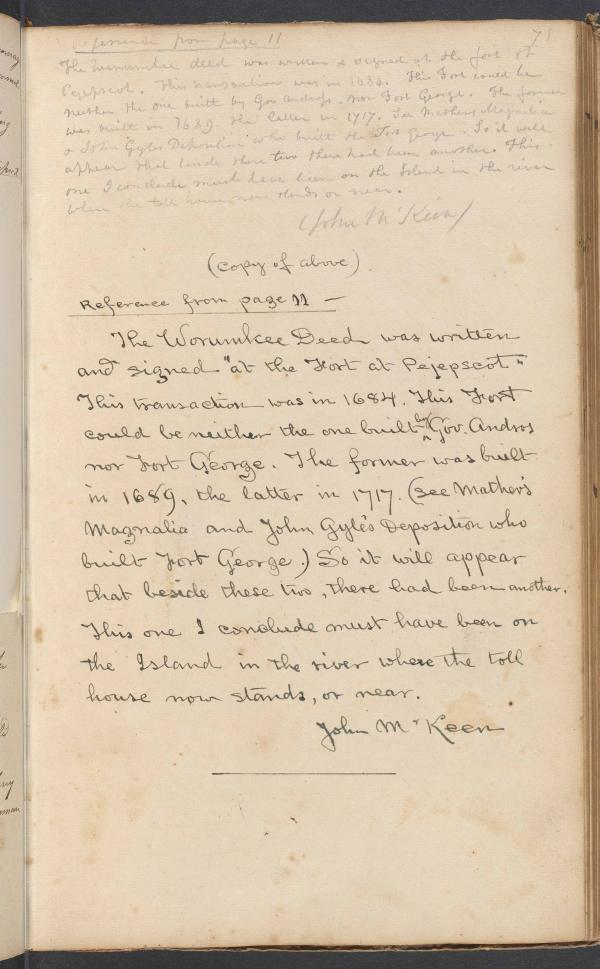 Reference from page 11
71
The Worumkee deed was written & signed at the fort at
Pejepscot. This transaction was in 1684. This Fort could be
neither the one built by Gov Andros nor Fort George. The former
was built in 1689 the latter in 1717. See Mathers Magnalia
& John Gyles Deposition who built the Fort George. So it will
appear that beside these two there had been another. This
one I conclude must have been on the Island in the river
when the toll house now stands or near.
(John McKeen)
(copy of above)
Reference from page 11 —
The Worumkee Deed was written
and signed "at the Fort at Pejepscot"
This transaction was in 1684. This Fort
could be neither the one built by Gov. Andros
nor Fort George. The former was built
in 1689, the latter in 1717. (see Mather's
Magnalia and John Gyle's Deposition who
built Fort George.) So it will appear
that beside these two, there had been another.
This one I conclude must have been on
the Island in the river where the toll
house now stands, or near.
John McKeen